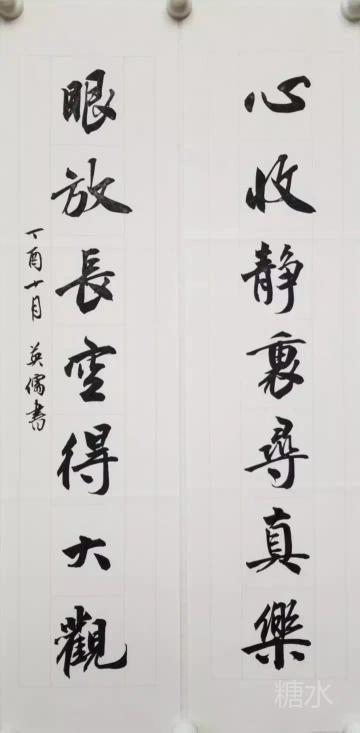 心收静裏尋真樂
眼放長空得大觀
丁酉十月 英儒書
糖水